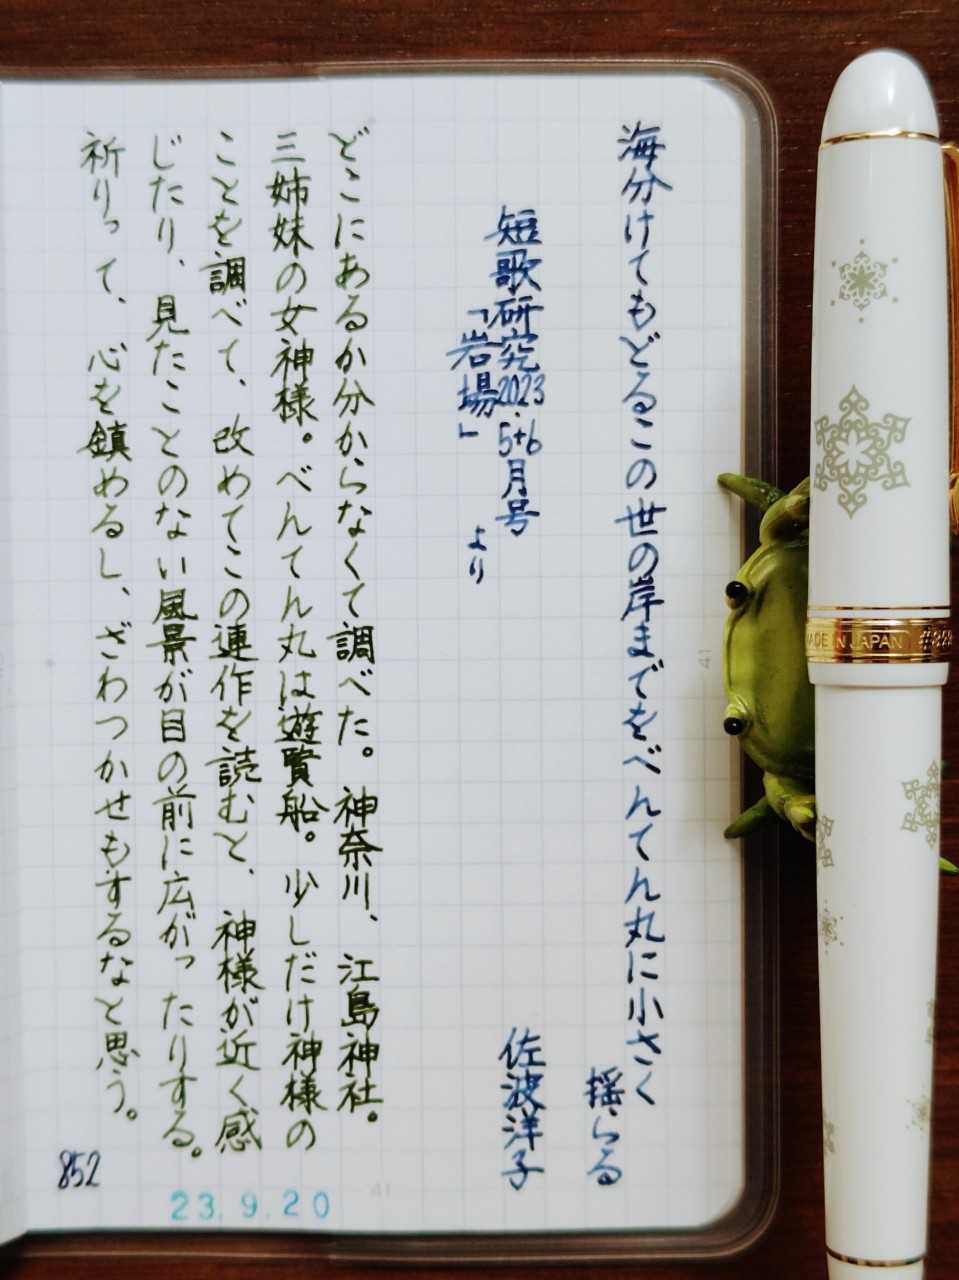 海分けてもどるこの世の岸までをべんてん丸に小さく
揺らる
短歌研究2023.5+6月号
「岩場」
より
佐波洋子
どこにあるか分からなくて調べた。神奈川、江島神社。
三姉妹の女神様。べんてん丸は遊賢船。少しだけ神様の
ことを調べて、改めてこの連作を読むと、神様が近く感
じたり、見たことのない風景が目の前に広がったりする。
祈りって、心を鎮めるし、ざわつかせもするなと思う。
852
23.9.20
41
41
MADE IN JAPAN